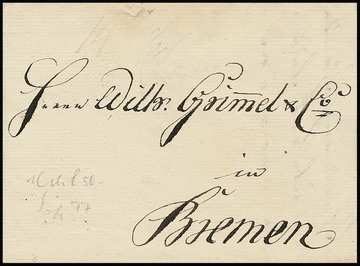 Herrn Wilh. Grimmel & Co
in
Bremen